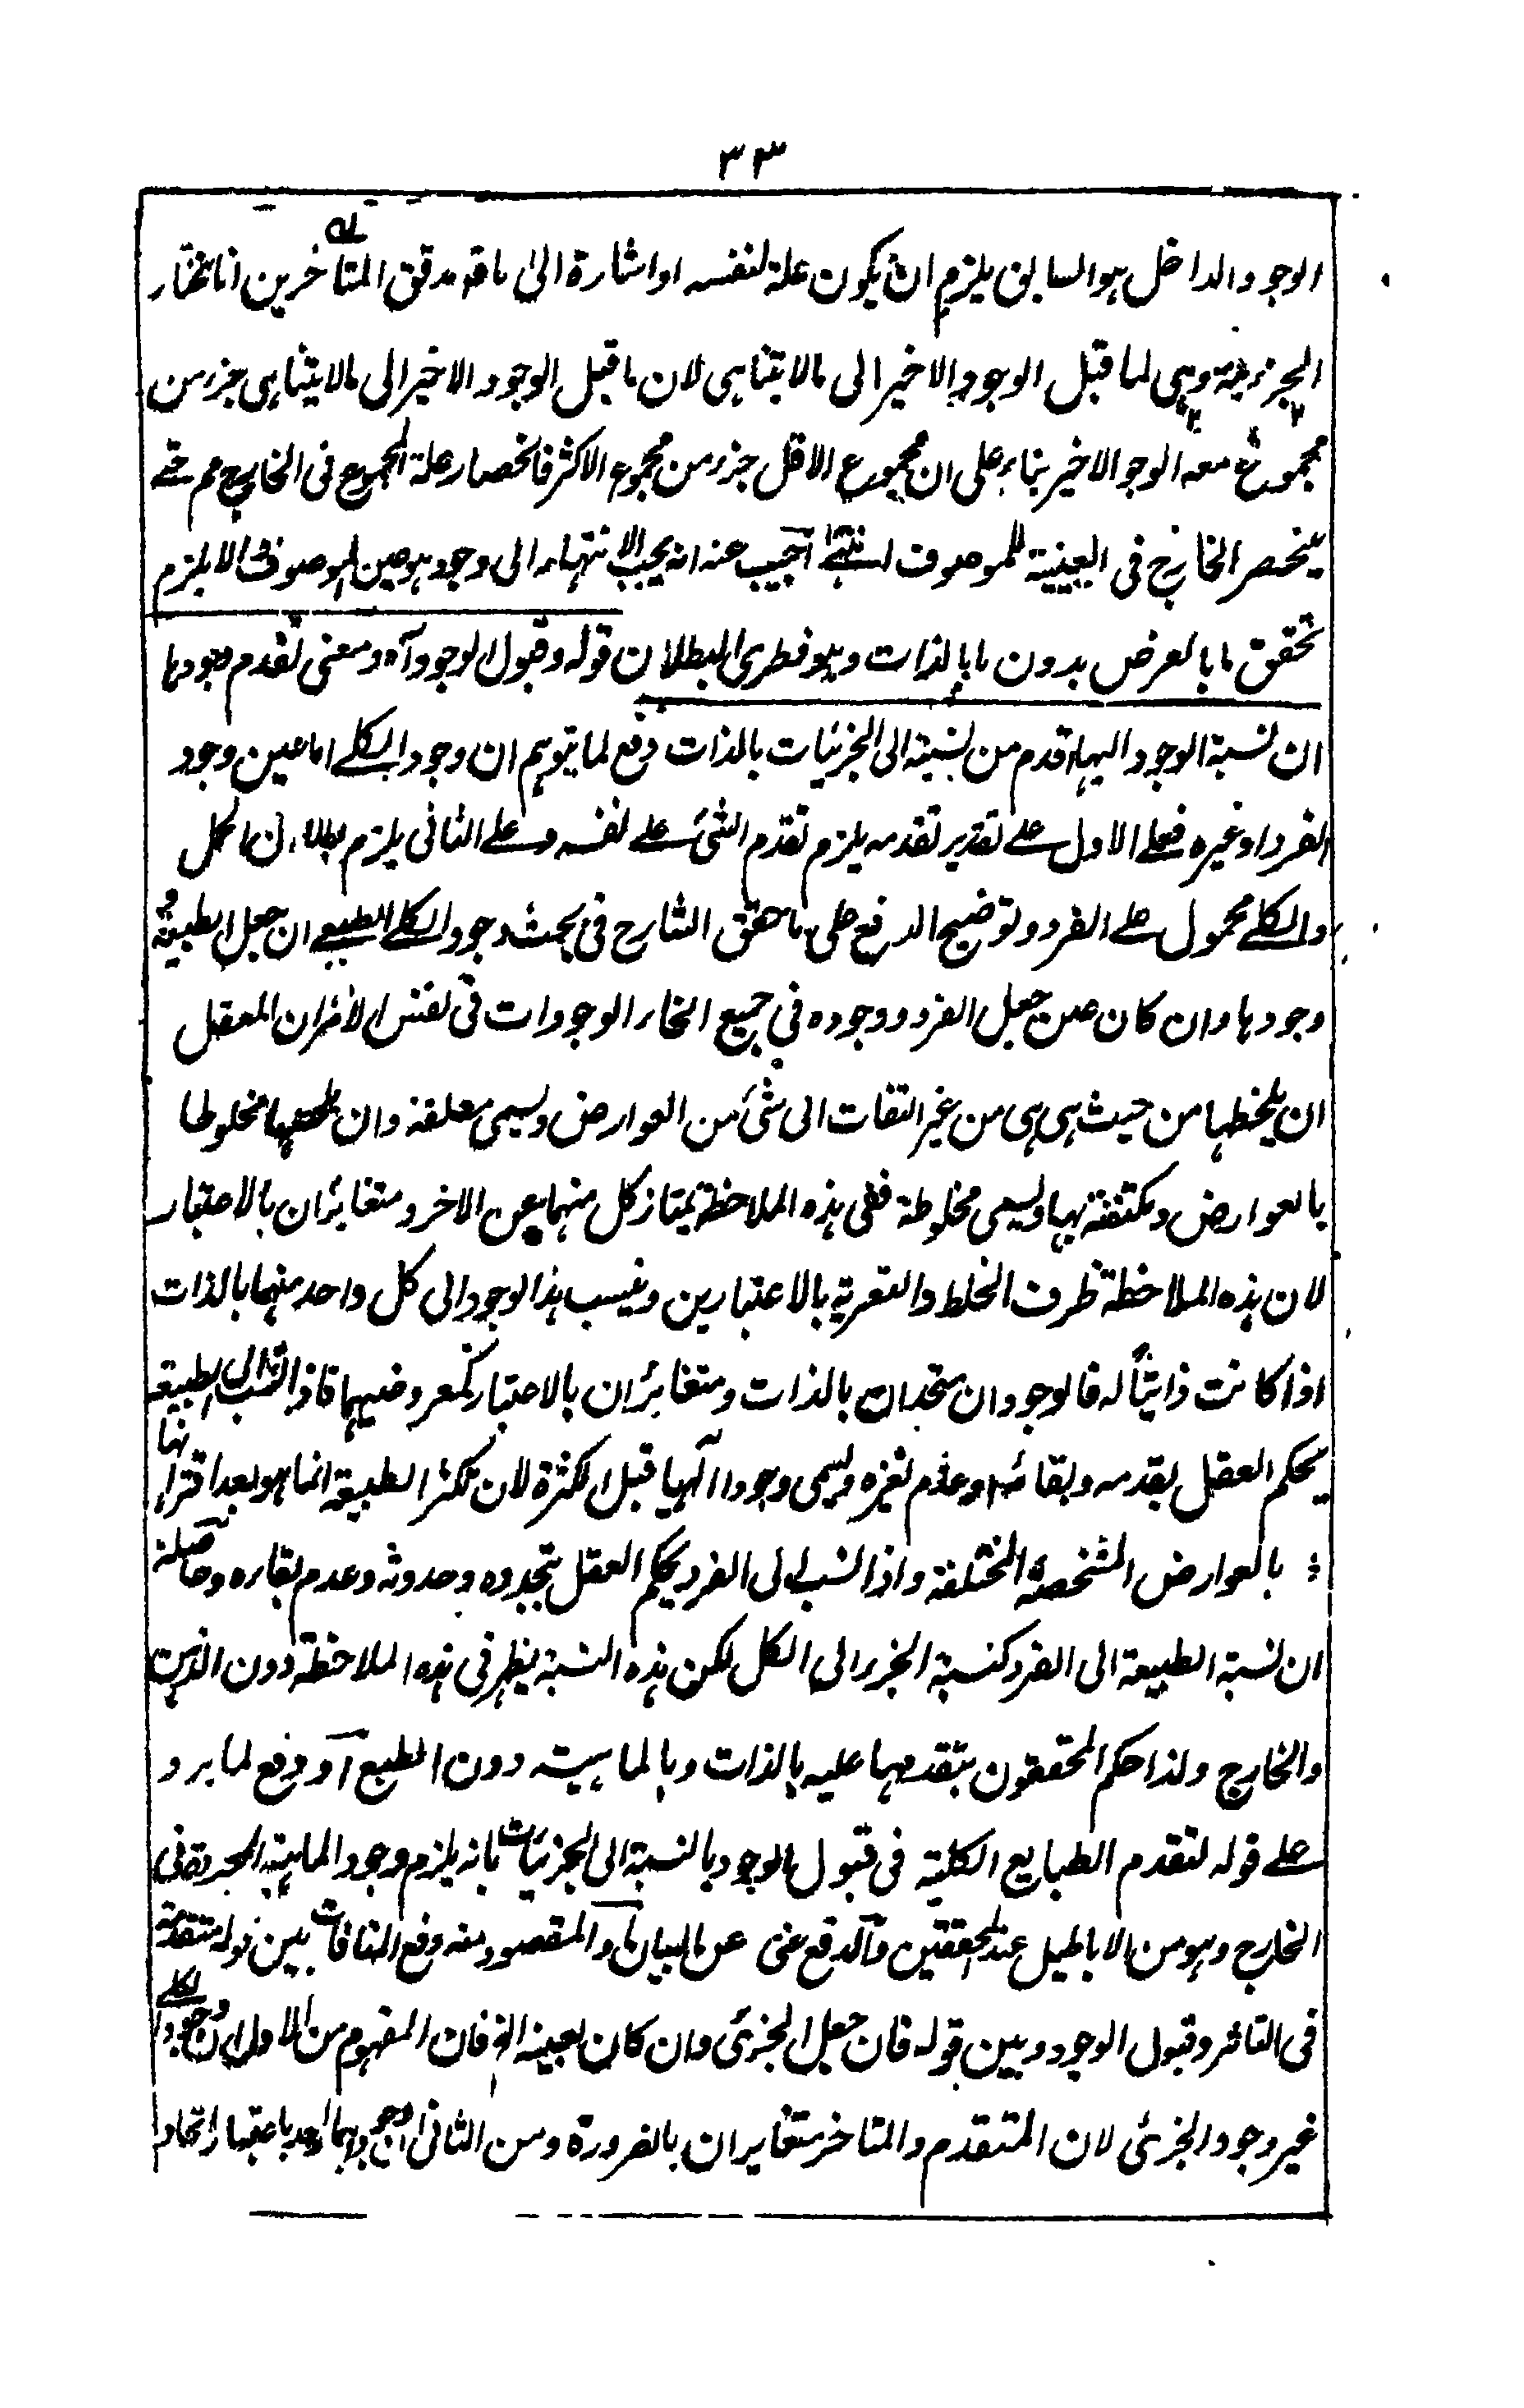 ٣٣
الوجود الداخل هو السابق يلزم ان يكون علة لنفسه او اشارة الى ما قد دقق المتاخرين انا نختار
الجزئية وهى لما قبل الوجود الاخير الى مالا يتناهى لان ما قبل الوجود الاخير الى مالا يتناهى جزء من
مجموع معه الوجود الاخير بناء على ان مجموع الاقل جزء من مجموع الاكثر فانحصار علة المجموع فى الخارج مم حتے
ينحصر الخارج فى العينية للموصوف انتهے اجيب عنه انه يجب الانتهاء الى وجود هو عين الموصوف والا يلزم
تحقق ما بالعرض بدون ما بالذات وهو فطرى البطلان قوله وقبول الوجود آه ومعنى تقدم وجودها
ان نسبة الوجود اليها اقدم من نسبته الى الجزئيات بالذات دفع لما يتوهم ان وجود الكلے اما عين وجود
الفرد او غيره فعلے الاول علے تقدير تقدمه يلزم تقدم الشئ علے نفسه وعلے الثانى يلزم بطلان الحمل
والكلے محمول علے الفرد وتوضيح الدفع على ما حقق الشارح فى بحث وجود الكلے الطبيعے ان جعل الطبيعة و
وجودها وان كان عين جعل الفرد ووجوده فى جميع انحاء الوجودات فى نفس الامر ان المعقل
ان يلحظها من حيث هى هى من غير التفات الى شئ من العوارض ويسمى مطلقة وان يلحظها مخلوطا
بالعوارض ومكتنفة بها ويسمى مخلوطة ففى هذه الملاحظة يمتاز كل منهما عن الاخر ومتغايران بالاعتبار
لان هذه الملاحظة ظرف الخلط والتعرية بالاعتبارين وينسب هذا الوجود الى كل واحد منهما بالذات
اذا كانت ذاتيا له فالوجودان متحدان بالذات ومتغايران بالاعتبار كمعروضيهما فاذا نسب الى الطبيعة
يحكم العقل بقدمه وبقائه وعدم تغيره ويسمى وجودا آلهيا قبل الكثرة لان تكثر الطبيعة انما هو بعد اقترانها
بالعوارض المشخصة المختلفة واذا نسب الى الفرد يحكم العقل بتجدده وحدوثه وعدم بقاءه وحاصله
ان نسبة الطبيعة الى الفرد كنسبة الجزء الى الكل لكن هذه النسبة يظهر فى هذه الملاحظة دون الذهن
والخارج ولذا حكم المحققون بتقدمها عليه بالذات وبالماهيته دون الطبع آو دفع لما يرد
علے قوله لتقدم الطبايع الكلية فى قبول الوجود بالنسبة الى الجزئيات بانه يلزم وجود الماهية المجردة فى
الخارج وهو من الاباطيل عند المحققين والدفع غنى عن البيان او المقصود منه دفع المنافات بين قوله متقدمة
فى التاثر وقبول الوجود وبين قوله فان جعل الجزئى وان كان بعينه الخ فان المفهوم من الاول ان وجود الكلے
غير وجود الجزئى لان المتقدم والمتاخر متغايران بالضرورة ومن الثانى ان وجودهما واحد باعتبار اتحاد